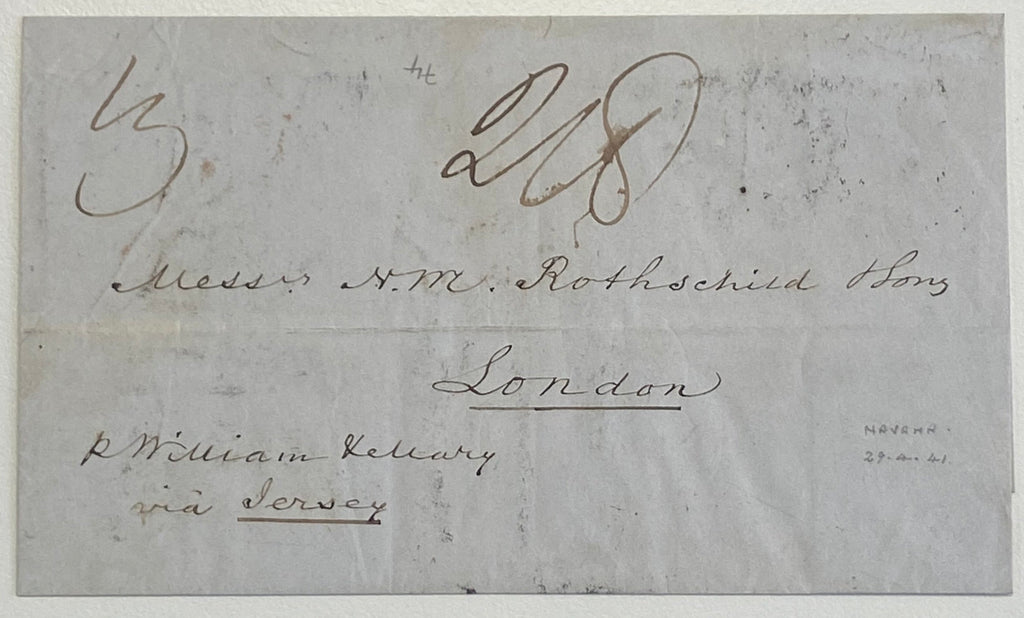 3 2/8
74
Messrs N.M. Rothschild & Sons
London
p William & Mary
via Jersey
HAVANA.
29.4.41.